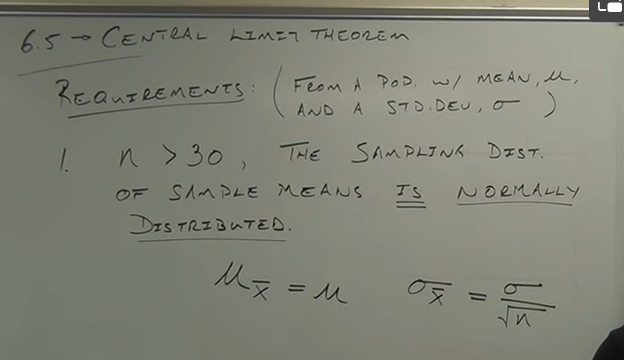 6.5 → CENTRAL LIMIT THEOREM
REQUIREMENTS: (FROM A POP. W/ MEAN, μ,
AND A STD.DEV, σ)
1. n > 30, THE SAMPLING DIST.
OF SAMPLE MEANS IS NORMALLY
DISTRIBUTED.
μx̄ = μ σx̄ = σ/√n